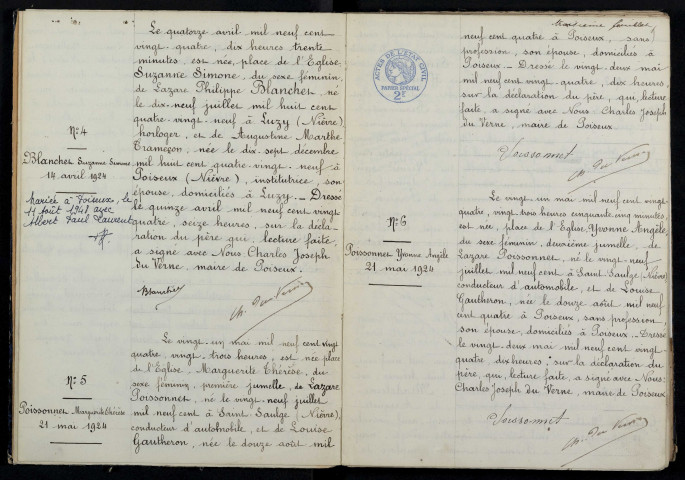 Le quatorze avril mil neuf cent
vingt-quatre, dix heures trente
minutes, est née, place de l'Eglise,
Suzanne Simone, du sexe féminin,
de Lazare Philippe Blanchet, né
le dix-neuf juillet mil huit cent
quatre-vingt-neuf à Luzy (Nièvre)
horloger, et de Augustine Marthe
Trameçon, née le dix-sept décembre
mil huit cent quatre-vingt-neuf à
Poiseux (Nièvre), institutrice, son
épouse, domiciliés à Luzy._ Dressé
le quinze avril mil neuf cent vingt
quatre, seize heures, sur la décla-
ration du père qui, lecture faite
a signé avec Nous, Charles Joseph
du Verne, maire de Poiseux.
N° 4
Blanchet Suzanne Simone
14 avril 1924
Mariée à Poiseux, le
11 août 1948 avec
Albert Paul Laurent
Blanchet
Ch. du Verne
Le vingt-un mai mil neuf cent vingt
quatre, vingt-trois heures, est née place
de l'Eglise, Marguerite Thérèse, du
sexe féminin, première jumelle, de Lazare
Poissonnet, né le vingt-neuf juillet
mil neuf cent à Saint-Saulge (Nièvre),
conducteur d'automobile, et de Louise
Gautheron, née le douze août mil
N° 5
Poissonnet Marguerite Thérèse
21 mai 1924
troisième feuillet
neuf cent quatre à Poiseux, sans
profession, son épouse, domiciliés à
Poiseux._ Dressé le vingt-deux mai
mil neuf cent vingt-quatre, dix heures,
sur la déclaration du père, qui, lecture
faite, a signé avec Nous: Charles Joseph
du Verne, maire de Poiseux.
ACTES DE L'ÉTAT CIVIL
PAPIER SPÉCIAL
2F
Poissonnet
Ch. du Verne
Le vingt un mai mil neuf cent vingt
quatre, vingt trois heures cinquante cinq minutes,
est née, place de l'Eglise, Yvonne Angèle,
du sexe féminin, deuxième jumelle, de
Lazare Poissonnet, né le vingt-neuf
juillet mil neuf cent à Saint Saulge (Nièvre)
conducteur d'automobile, et de Louise
Gautheron, née le douze août mil neuf
cent quatre à Poiseux, sans profession,
son épouse, domiciliés à Poiseux._ Dressé
le vingt-deux mai mil neuf cent vingt-
quatre dix heures, sur la déclaration du
père, qui, lecture faite, a signé avec Nous:
Charles Joseph du Verne, maire de Poiseux
N° 6
Poissonnet Yvonne Angèle
21 mai 1924
Poissonnet
Ch. du Verne